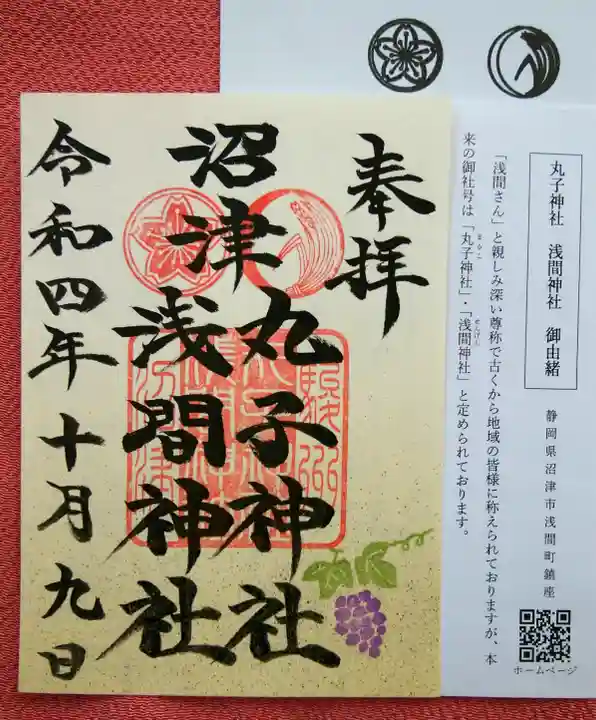 丸子神社 浅間神社 御由緒
静岡県沼津市浅間町鎮座
「浅間さん」と親しみ深い尊称で古くから地域の皆様に称えられておりますが、本
来の御社号は「丸子神社」・「浅間神社」と定められております。
まるこ
せんげん
ホームページ
奉拝
沼津
丸子神社
浅間神社
令和四年十月九日